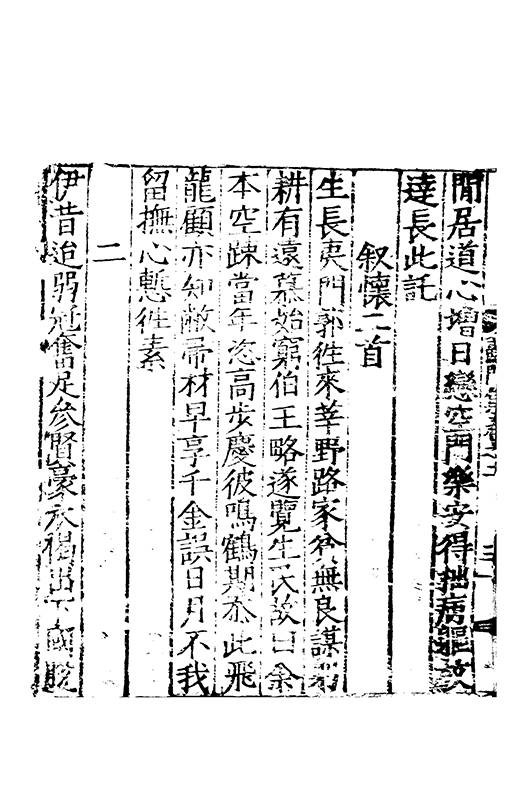 閒居道心增日戀空門樂安得拙病軀
達長此託
叙懷二首
生長夷門郭徃來莘野路家貧無良謀躬
耕有遠慕始窮伯王略遂覽生民故曰余
本空疎當年恣高步慶彼鳴鶴期忝此飛
龍顧亦知敝帚材早享千金誤日月不我
留撫心慙徃素
二
伊昔迨弱冠奮足參賢豪衣褐出下國脫